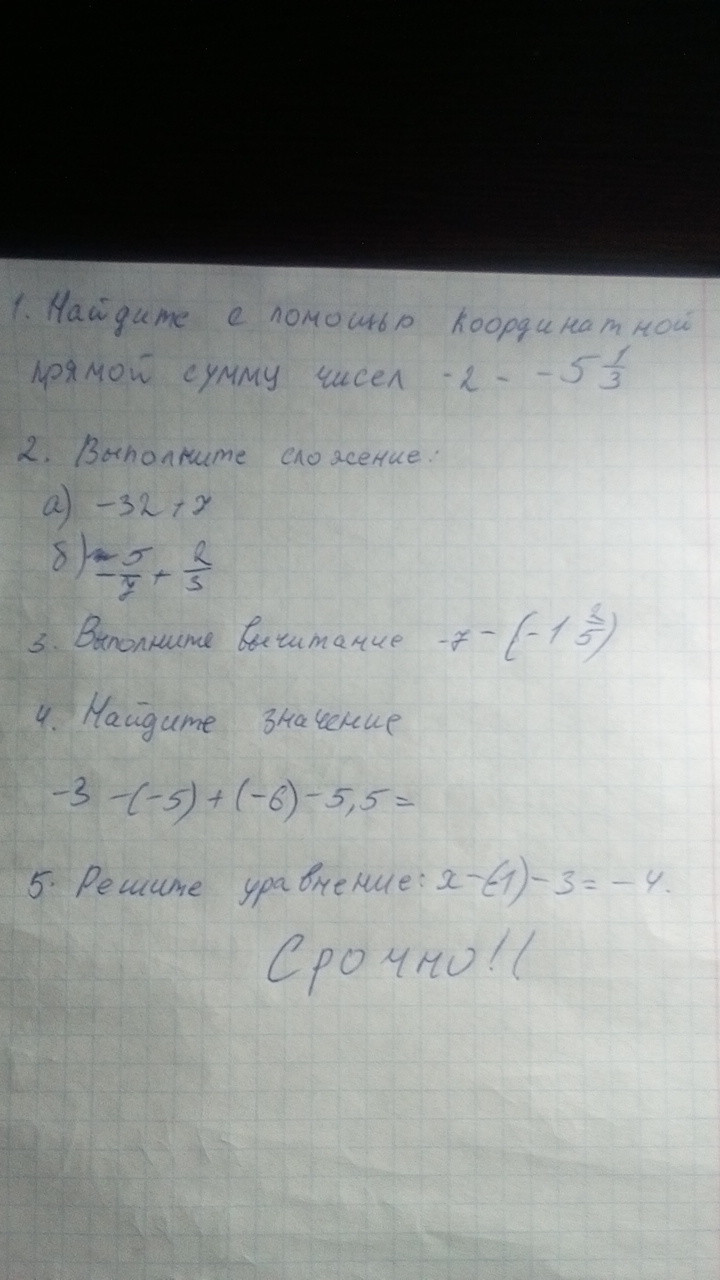 1. Найдите с помощью координатной
прямой сумму чисел -2 - -5 1/3
2. Выполните сложение:
а) -32+7
б) -5/7 + 2/3
3. Выполните вычитание -7-(-1 2/5)
4. Найдите значение
-3 -(-5)+(-6)-5,5=
5. Решите уравнение: х-(-1)-3=-4.
Срочно!!